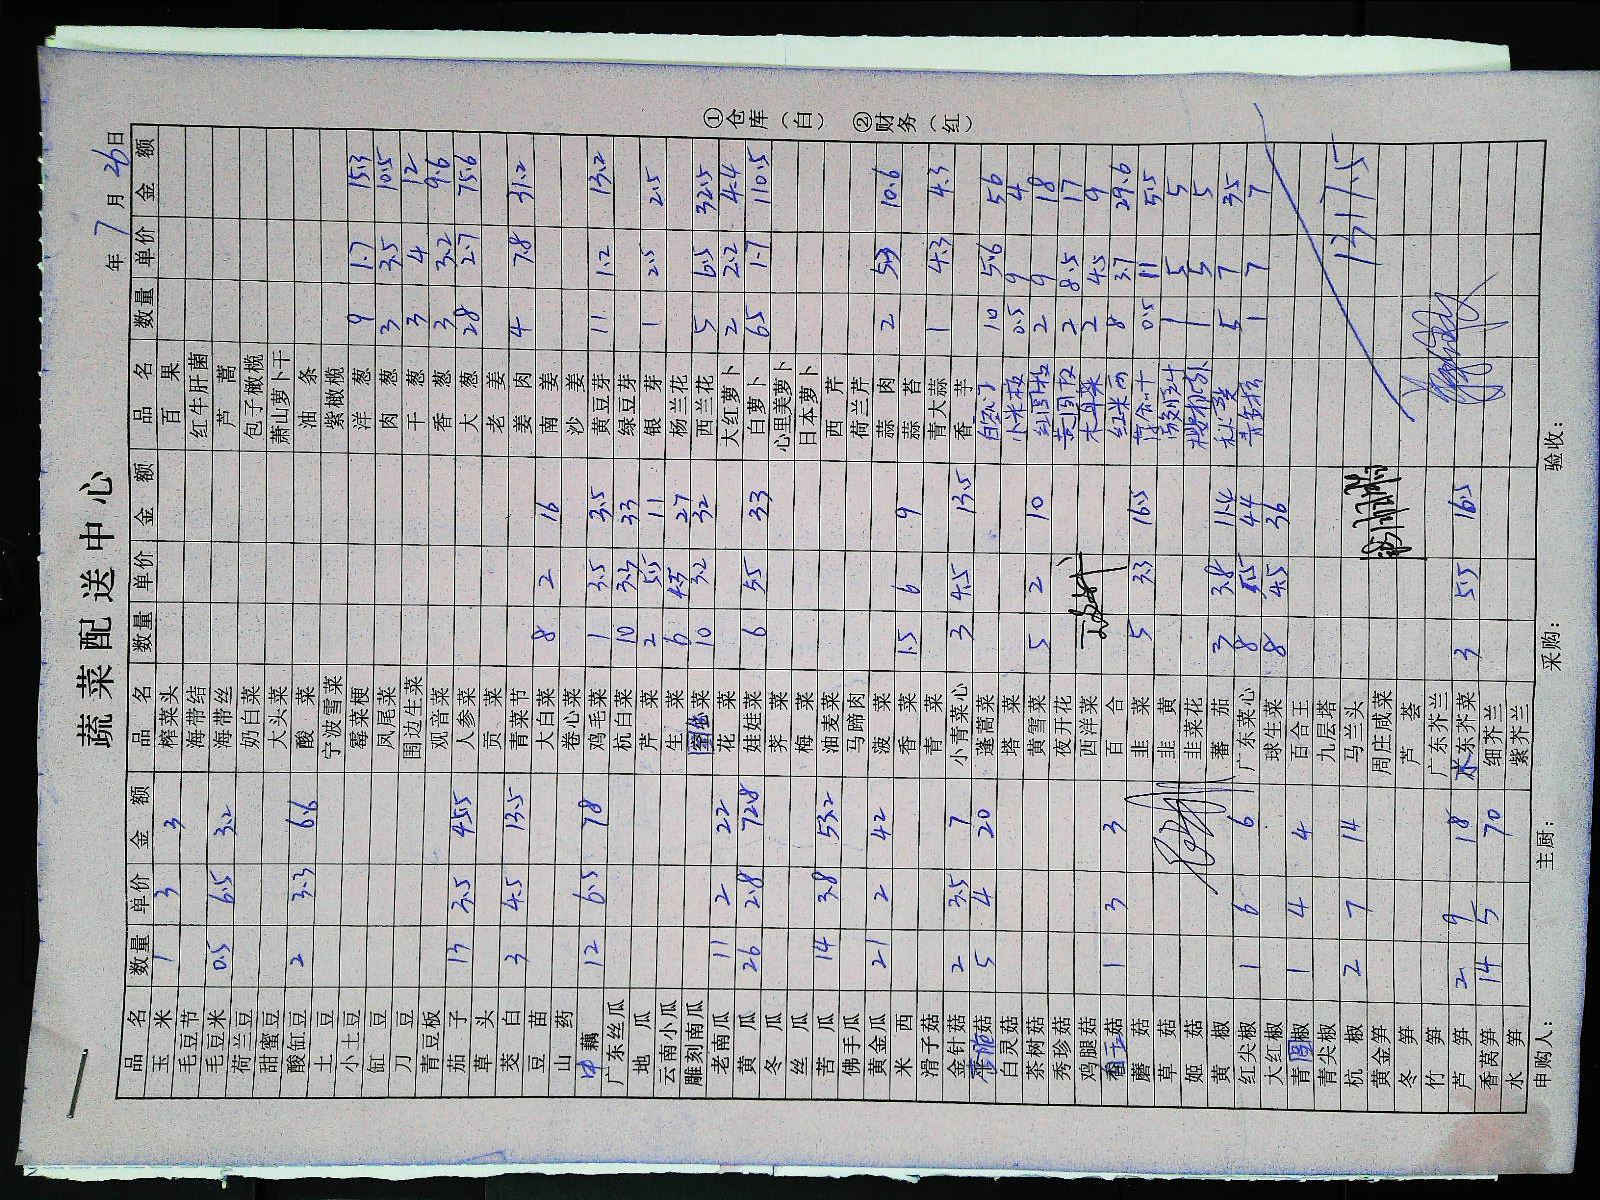 蔬菜配送中心
年 7 月 26 日
品名 数量 单价 金额 品名 数量 单价 金额 品名 数量 单价 金额
玉米 1 3 3 榨菜头 百果
毛豆节 海带结 红牛肝菌
毛豆米 0.5 6.5 3.2 海带丝 芦蒿
荷兰豆 奶白菜 包子橄榄
甜蜜豆 大头菜 萧山萝卜干
酸缸豆 2 3.3 6.6 酸菜 油条
土豆 宁波雪菜 紫橄榄
小土豆 霉菜梗 洋葱 9 1.7 15.3
缸豆 凤尾菜 肉葱 3 3.5 10.5
刀豆 围边生菜 干葱 3 4 12
青豆板 观音菜 香葱 3 3.2 9.6
茄子 13 3.5 45.5 人参菜 大葱 28 2.7 75.6
草头 贡菜 老姜
茭白 3 4.5 13.5 青菜节 姜肉 4 7.8 31.2
豆苗 大白菜 8 2 16 南姜
山药 卷心菜 沙姜
中藕 12 6.5 78 鸡毛菜 1 3.5 3.5 黄豆芽 11 1.2 13.2
广东丝瓜 杭白菜 10 3.3 33 绿豆芽
地瓜 芹菜 2 5.5 11 银芽 1 2.5 2.5
云南小瓜 生菜 6 4.5 27 杨兰花
雕刻南瓜 菜 10 3.2 32 西兰花 5 6.5 32.5
老南瓜 11 2 22 花菜 大红萝卜 2 2.2 4.4
黄瓜 26 2.8 72.8 娃娃菜 6 5.5 33 白萝卜 6.5 1.7 10.5
冬瓜 荠菜 心里美萝卜
丝瓜 梅菜 日本萝卜
苦瓜 14 3.8 53.2 油麦菜 西芹
佛手瓜 马蹄肉 荷兰芹
黄金瓜 21 2 42 菠菜 蒜肉 2 5.3 10.6
米西 香菜 1.5 6 9 蒜苔
滑子菇 青菜 青大蒜 1 4.3 4.3
金针菇 2 3.5 7 小青菜心 3 4.5 13.5 香芋
杏鲍菇 5 4 20 蓬蒿菜 10 5.6 56
白灵菇 塔菜 小米椒 0.5 9 4
茶树菇 黄雪菜 5 2 10 红圆椒 2 9 18
秀珍菇 夜开花 黄圆椒 2 8.5 17
鸡腿菇 西洋菜 木耳菜 2 4.5 9
菇 1 3 3 百合 红米苋 8 3.7 29.6
蘑菇 韭菜 5 3.3 16.5 0.5 11 5.5
草菇 韭黄 1 5 5
姬菇 韭菜花 1 5 5
黄椒 蕃茄 3 3.8 11.4 5 7 35
红尖椒 1 6 6 广东菜心 8 5.5 44 1 7 7
大红椒 球生菜 8 4.5 36
青圆椒 1 4 4 百合王
青尖椒 九层塔
杭椒 2 7 14 马兰头 1317.5
黄金笋 周庄咸菜
冬笋 芦荟
竹笋 广东芥兰
芦笋 2 9 18 水东芥菜 3 5.5 16.5
香莴笋 14 5 70 细芥兰
水笋 紫芥兰
申购人： 主厨： 采购： 验收：
①仓库（白） ②财务（红）